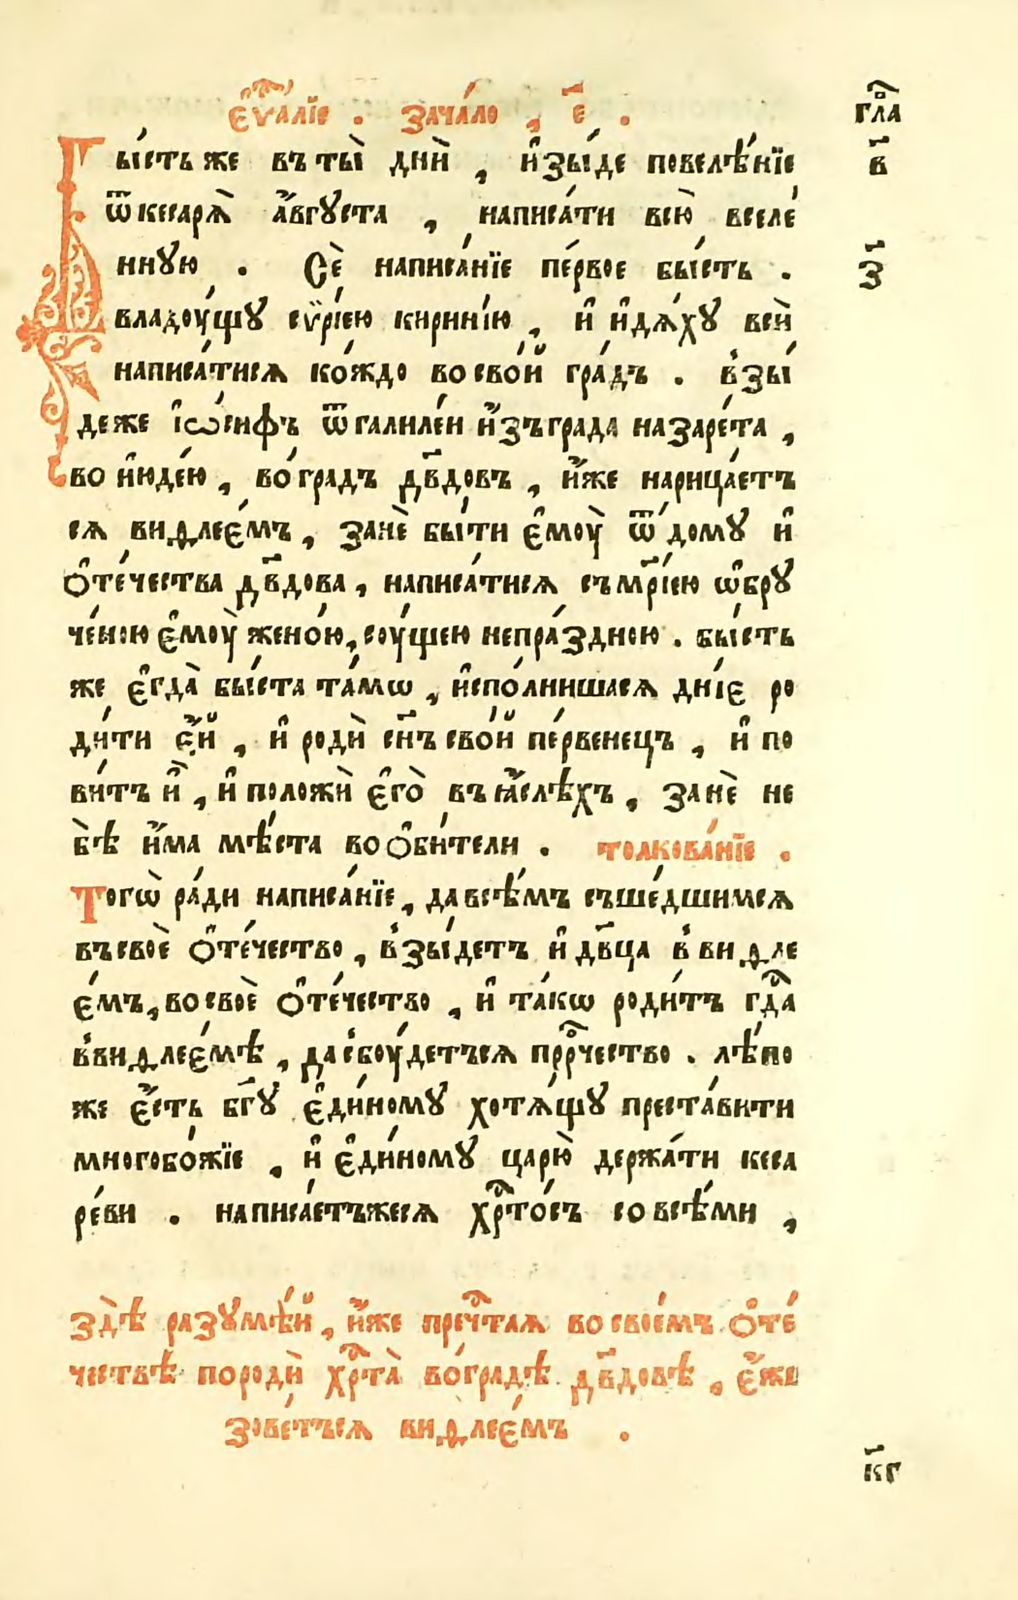 є҆ѵⷢ҇алїе . зача́ло , є҃ . гла̑
Бы́сть же въ ты̀ дни̑ , и҆зы́де повелѣ́нїе в҃
ѿ кесарѧ̀ а҆́вгуста , написа́ти всю̀ вселе́
нную . Се̏ написа́нїе пе́рвое бы́сть . з҃
владоу́щу сѷрі́ею кирині́ю , и҆ и҆дѧ́ху всѝ
написа́тисѧ ко́ждо во сво́й гра́дъ . в̾зы́
де же і҆ѡ́сифъ ѿ галиле́и и҆́зъ града назаре́та ,
во и҆юде́ю , во́ градъ дв҃довъ , и҆́же нарица́етъ
сѧ виѳлее́мъ , зане̏ бы́ти є҆моу̀ ѿ до́му и҆
ѻ҆те́чества дв҃дова , написа́тисѧ съ мр҃і́ею ѡ҆бру
че́ною є҆моу̀ жено́ю , соу́щею непра́здною . бы́сть
же є҆гда̀ бы́ста та́мѡ , и҆спо́лнишасѧ дні́е ро
ди́ти є҆́й , и҆ родѝ сн҃ъ сво́й пе́рвенецъ , и҆ по
ви́тъ и҆̀ , и҆ положѝ є҆го̀ въ ꙗ҆́слѣхъ , зане̏ не
бѣ̀ и҆́ма мѣ́ста во ѻ҆би́тели . толкова́нїе .
Тогѡ̀ ра́ди написа́нїе , да всѣ́мъ съше́дшимсѧ
въ свое̏ ѻ҆те́чество , в̾зы́детъ и҆ дв҃ца в̾ виѳле
е́мъ , во свое̏ ѻ҆те́чество , и҆ та́кѡ роди́тъ гдⷭ҇а
в̾ виѳлее́мѣ , да сбоу́детъсѧ прⷪ҇рчество . лѣ́по
же є҆́сть бг҃у є҆ди́ному хотѧ́щу преста́вити
многобо́жїе , и҆ є҆ди́ному царю̀ держа́ти кеса
ре́ви . написа́етъжесѧ хрⷭ҇то́съ со всѣ́ми ,
здѣ̀ разумѣ́й , и҆́же пречⷭ҇таѧ во свое́мъ ѻ҆те́
чествѣ породѝ хрⷭ҇та̀ во́ градѣ дв҃довѣ , є҆́же
зове́тъсѧ виѳлее́мъ .
к҃г